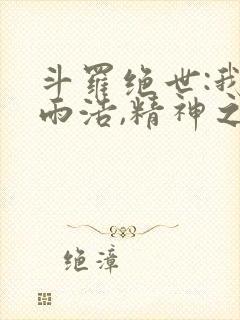 斗羅绝世:我
雨浩,精神之
绝漳